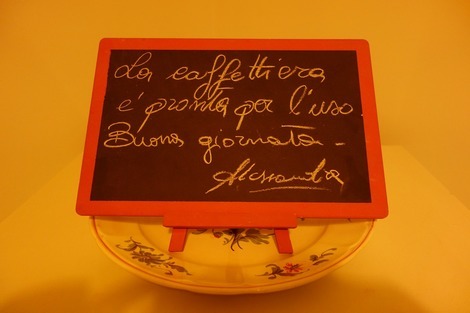 La caffettiera
é pronta per l'uso
Buona giornata -
Alessandra